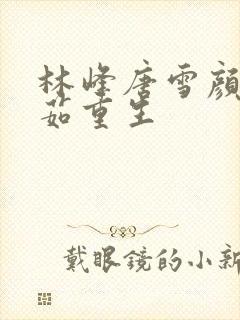 林峰唐雪颜
茹重生
戴眼镜的小新